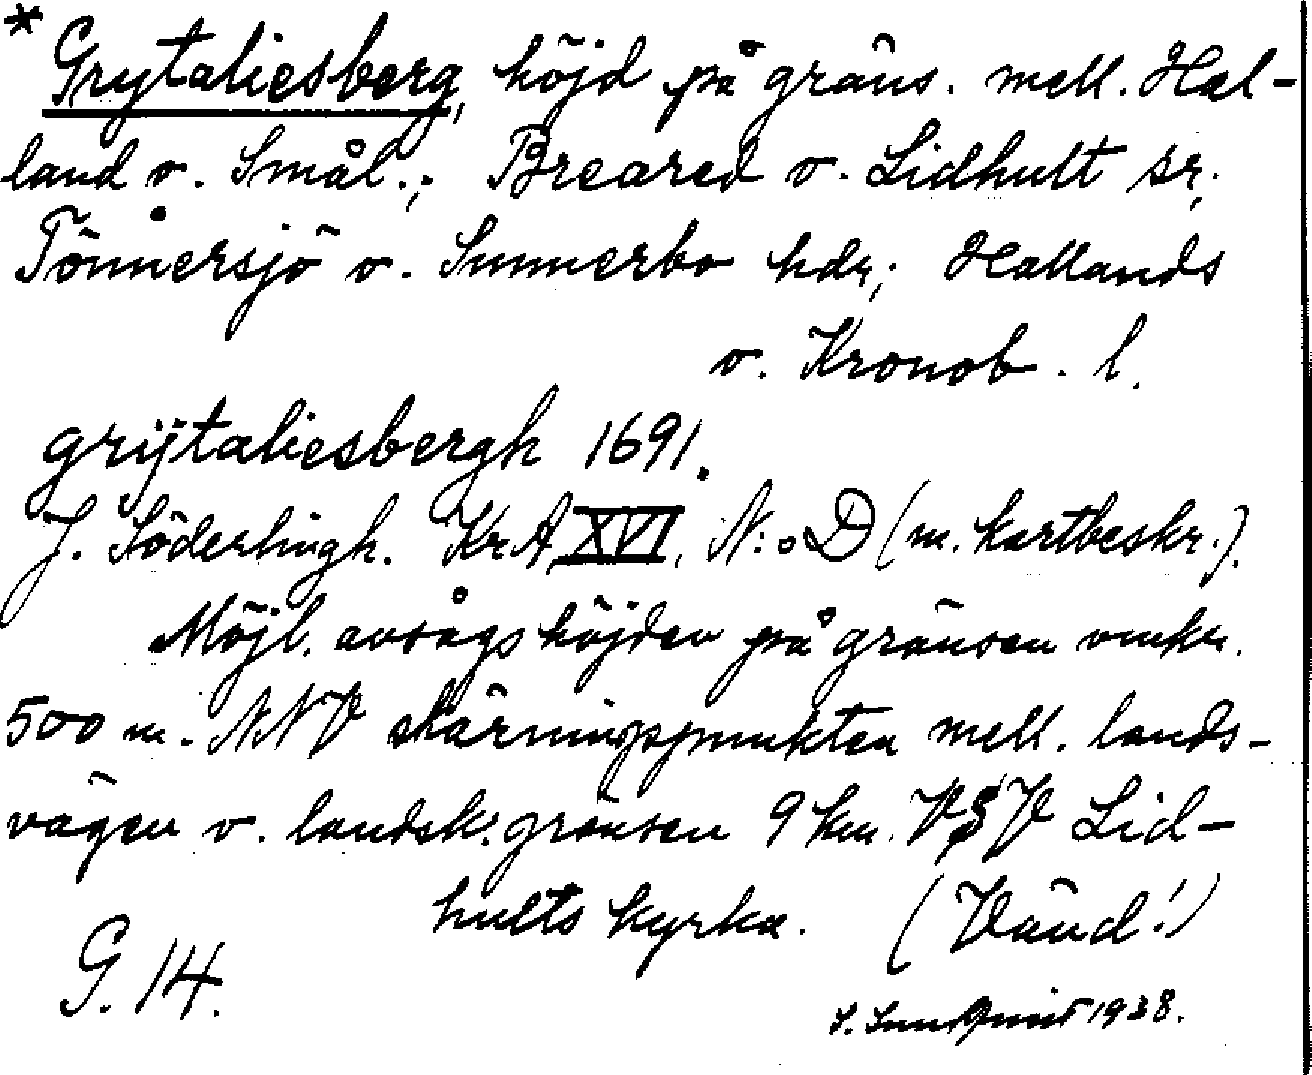 * Grytaliesberg, höjd på gräns. mell. Hal-
land o. Smål.; Breared o. Lidhult sr,
Tönnersjö o. Sunnerbo hdr; Hallands
o. Kronob. l.
grÿtaliesbergh 1691.
J. Söderlingh. KrA XVI, N:o D (m. kartbeskr.).
Möjl. avsågs höjden på gränsen omkr.
500 m. NNV skärningspunkten mell. lands-
vägen o. landsk.gränsen 9 km. VSV Lid-
hults kyrka. (Vänd!)
G. 14.
S. Sundqvist 1938.